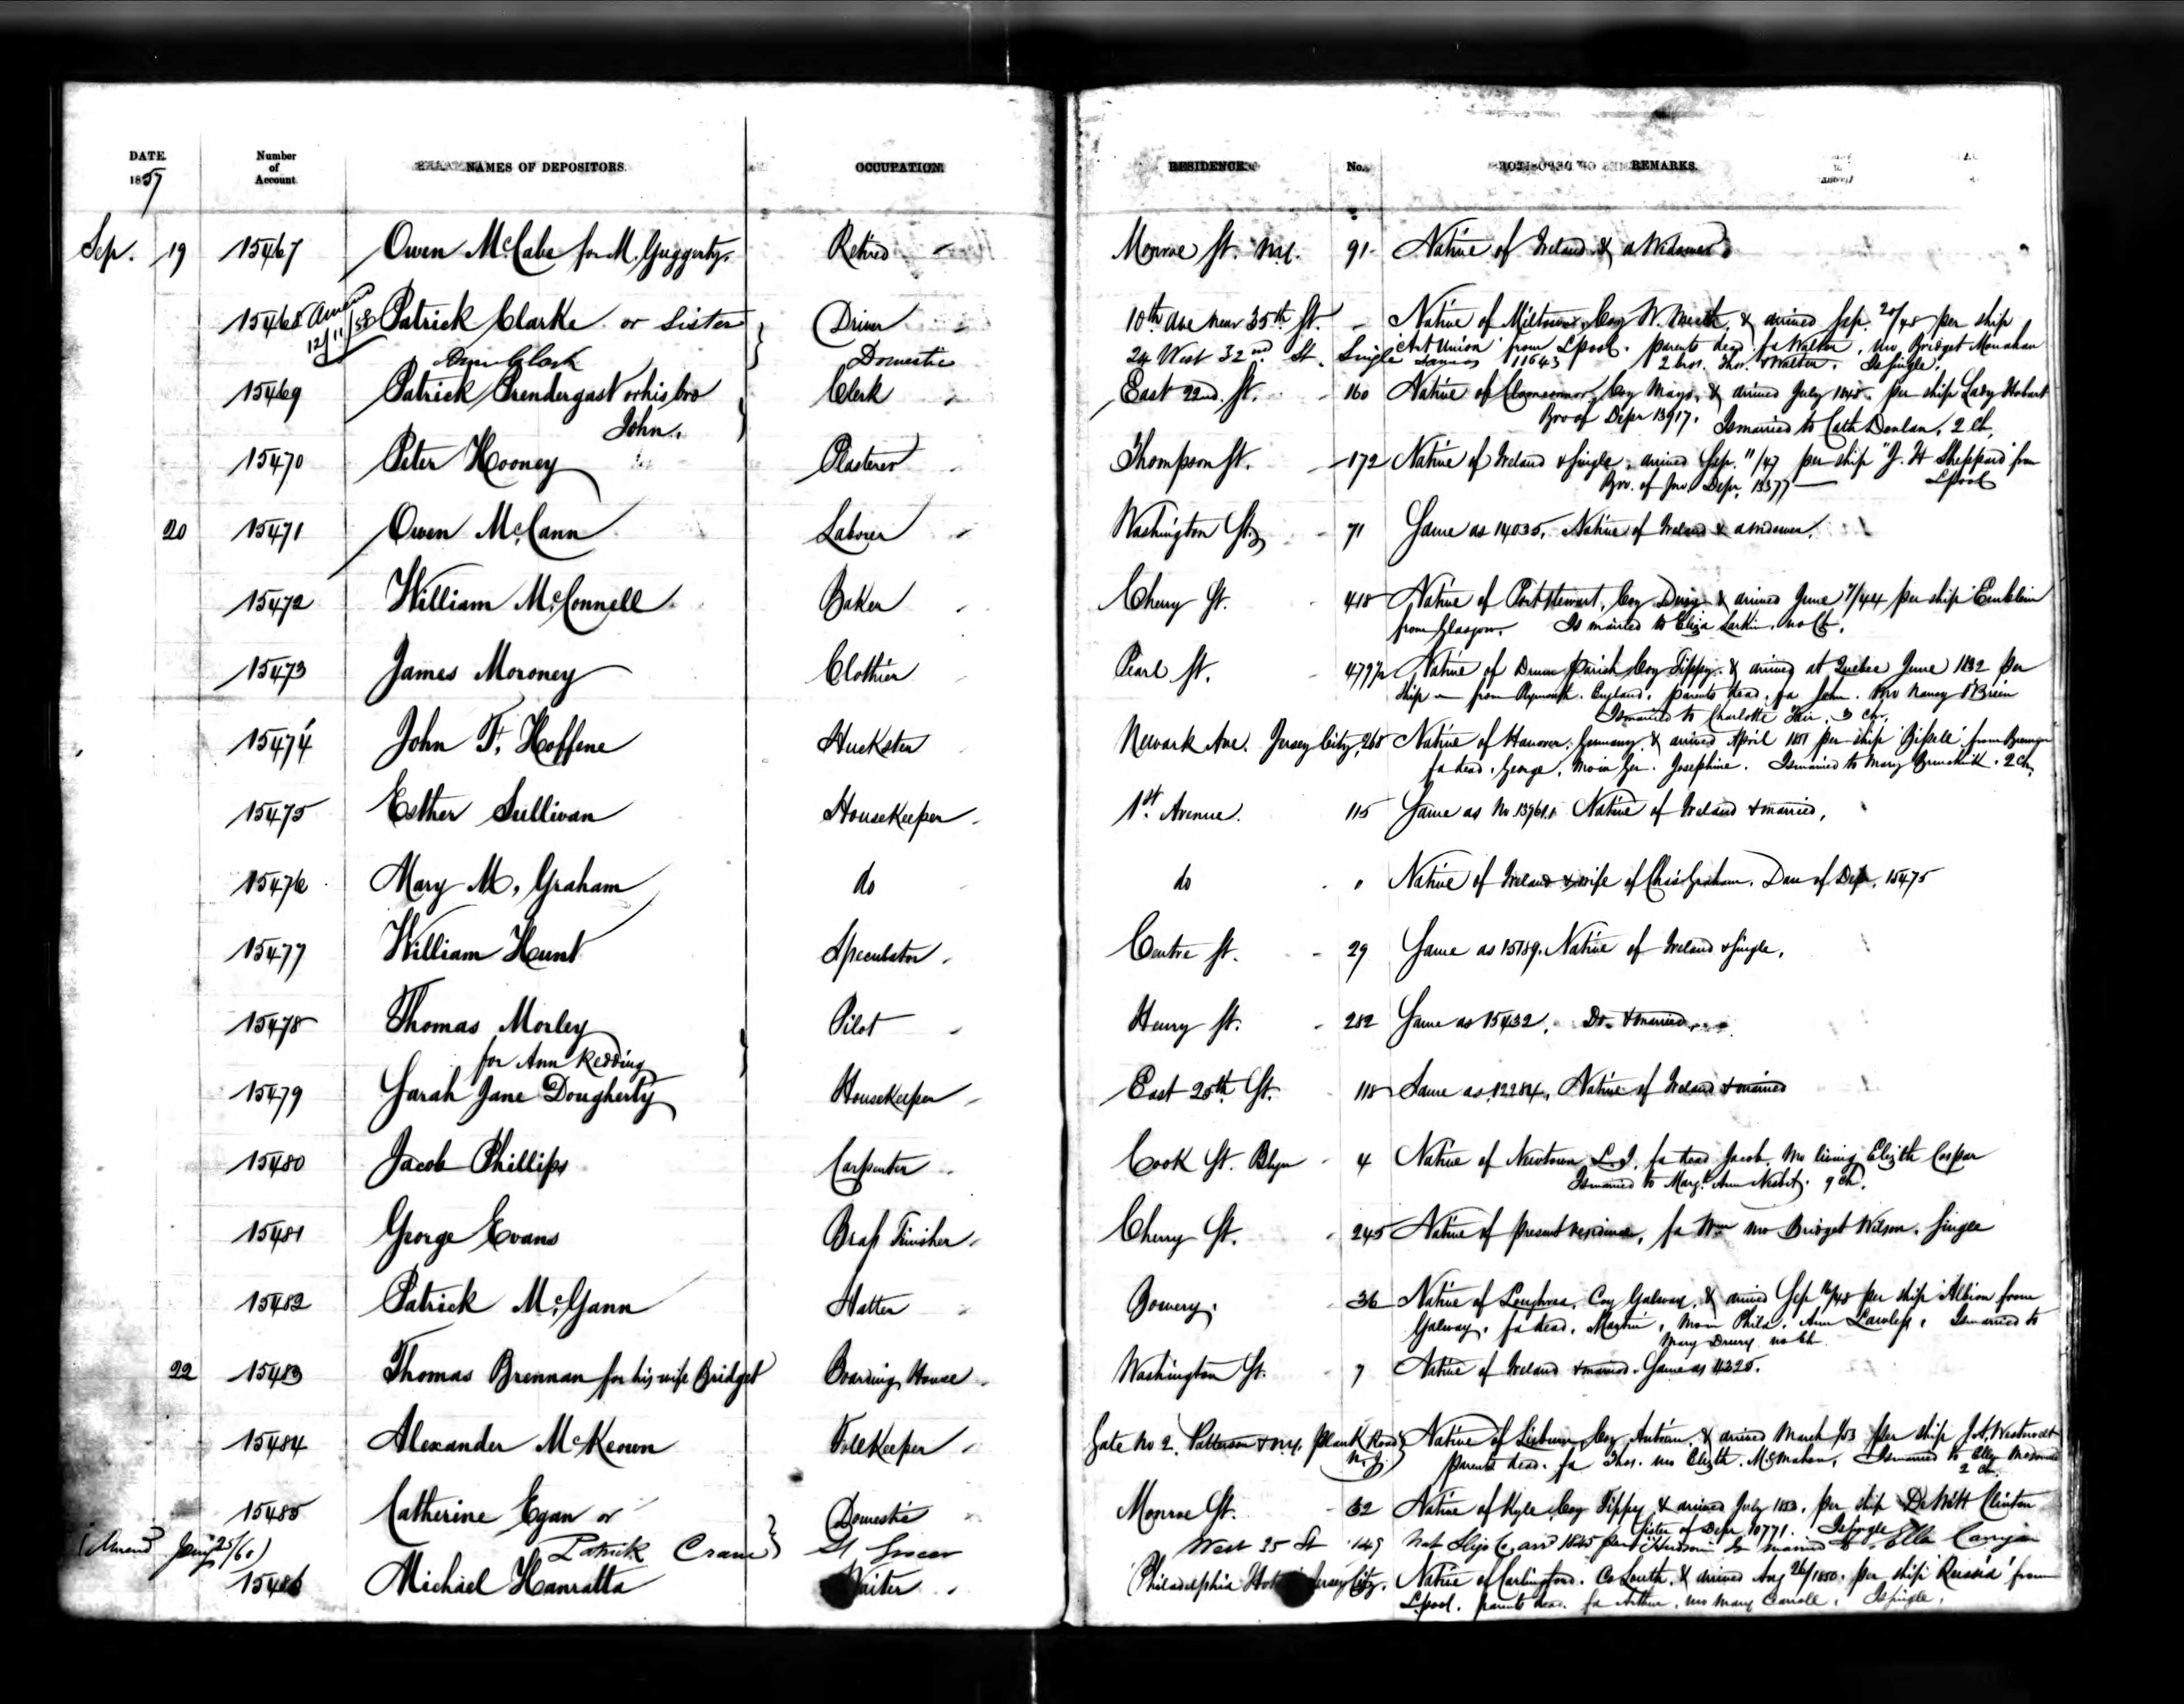 DATE. Number of Account NAMES OF DEPOSITORS. OCCUPATION. RESIDENCE. No. REMARKS.
1857
Sep. 19 15467 Owen McCabe for M. Guggerty. Retired Monroe St. N.Y. 91 Native of Ireland & a Widower.
15468 Amend 12/11/58 Patrick Clarke or Sister Driver 10th Ave near 35th St. Native of Miltown, Coy W. Meath, & arrived Sep. 20/48 per ship
Ann Clark Domestic 24 West 32nd St. Single 11643 "Art Union" from Lpool. parents dead. fa Walter, mo Bridget Monahan
2 bros. Thos. & Walter. Is single.
15469 Patrick Prendergast or his bro Clerk East 22nd St. 160 Native of Coy Mayo, & arrived July 1848. per ship Lady Hobart
John. Bro of Depr 13917. Is married to Cath Donlan, 2 Ch.
15470 Peter Hooney Plasterer Thompson St. 172 Native of Ireland & Single. arrived Sep. 11/47 per ship "J. H Sheppard" from
Bro. of Jno. Depr. 13377 Lpool
20 15471 Owen McCann Laborer Washington St. 71 Same as 14035. Native of Ireland & a widower.
15472 William McConnell Baker Cherry St. 418 Native of Portstewart, Coy Derry & arrived June 7/44 per ship
from Glasgow. Is married to Eliza Larkin. no Ch.
15473 James Moroney Clothier Pearl St. 479½ Native of Drum parish Coy Tippy. & arrived at Quebec June 1832 per
ship — from Plymouth. England. parents dead. fa John. mo Nancy O'Brien
Is married to Charlotte 3 Ch.
15474 John F. Hoffene Huckster Newark Ave. Jersey City, 268 Native of Hanover, Germany & arrived April 1851 per ship from Bremen
fa dead. George. mo in Ger. Josephine. Is married to Mary 2 Ch.
15475 Esther Sullivan Housekeeper 1st Avenue. 115 Same as No 13961. Native of Ireland & married.
15476 Mary M. Graham do do " Native of Ireland & wife of Chas Graham. Dau of Depr. 15475
15477 William Hunt Speculator Centre St. 29 Same as 15189. Native of Ireland & Single.
15478 Thomas Morley Pilot Henry St. 282 Same as 15432. Do. & married.
for Ann Redding
15479 Sarah Jane Dougherty Housekeeper East 25th St. 118 Same as 12284. Native of Ireland & married
15480 Jacob Phillips Carpenter Cook St. Blyn 4 Native of Newtown L.I. fa dead Jacob. Mo living Elizth Casper
Is married to Margt Ann Nesbit. 9 Ch.
15481 George Evans Brass Finisher Cherry St. 245 Native of present residence, fa Wm mo Bridget Wilson. Single
15482 Patrick McGann Hatter Bowery. 36 Native of Loughrea, Coy Galway, & arrived Sep 16/48 per ship Albion from
Galway. fa dead, Martin, Mo in Phila. Ann Lawless. Is married to
Mary Drury no Ch
22 15483 Thomas Brennan for his wife Bridget Boarding House Washington St. 7 Native of Ireland & married. Same as 4325.
15484 Alexander McKeown Tollkeeper Gate No 2. Patterson & N.Y. Plank Road N.J. Native of Lisburn, Coy Antrim, & arrived March /53 per ship J. A. Westervelt
parents dead. fa Thos. mo Elizth. McMahon. Is married to Ellen
2 Ch.
15485 Catherine Egan or Domestic Monroe St. 32 Native of Kyle Coy Tippy & arrived July 1853. per ship DeWitt Clinton
Sister of Depr 10771. Is single
(Amend Jany 25/61) Patrick Crane St Grocer West 35 St 149 Nat Sligo Co arrd 1845 per Hudson Is married to Ellen
15486 Michael Hanratta Waiter Philadelphia Hotel Jersey City. Native of Carlingford. Co Louth. & arrived Aug 26/1850. per ship 'Russia' from
Lpool. parents dead. fa Arthur, mo Mary Carroll. Is single.